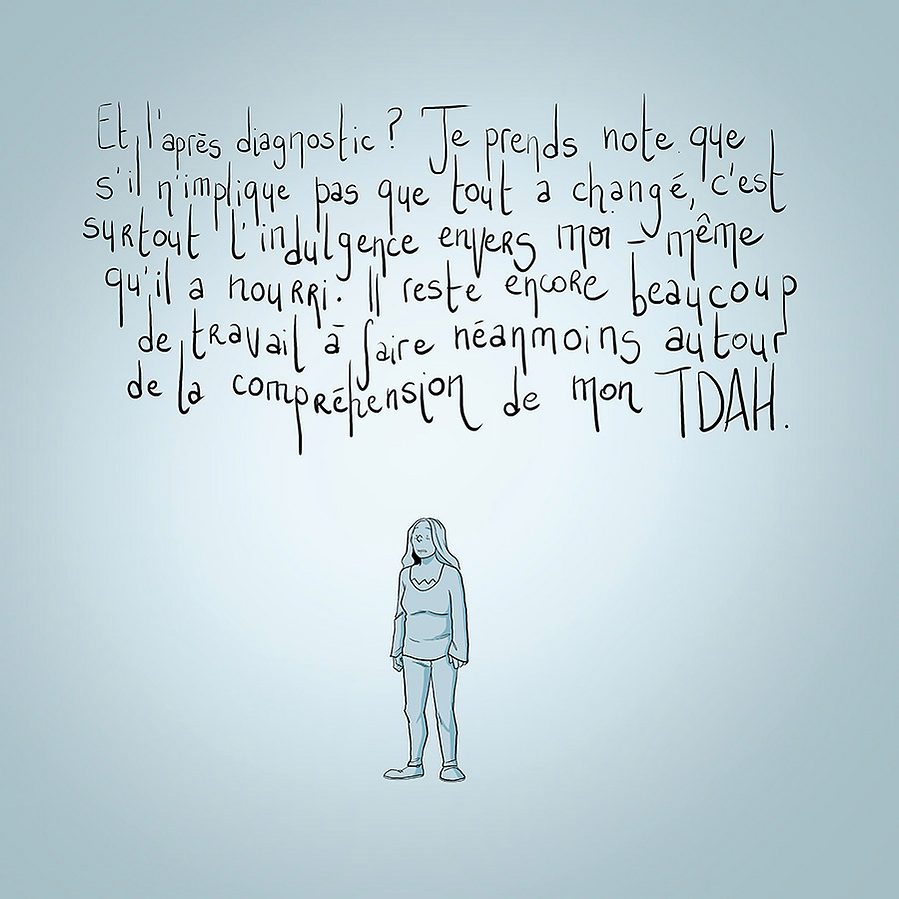 Et l'après diagnostic ? Je prends note que
s'il n'implique pas que tout a changé, c'est
surtout l'indulgence envers moi - même
qu'il a nourri. Il reste encore beaucoup
de travail à faire néanmoins autour
de la compréhension de mon TDAH.